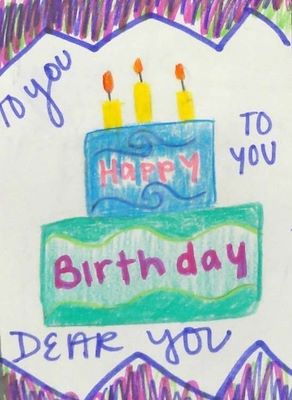 TO YOU
TO
YOU
Happy
Birthday
DEAR YOU